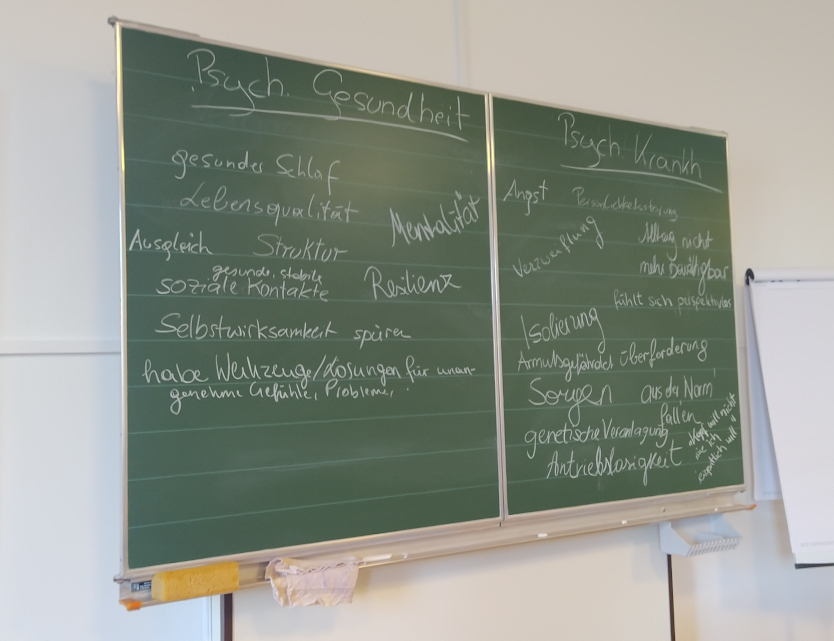 Psych. Gesundheit
gesunder Schlaf
Lebensqualität
Mentalität
Ausgleich Struktur
gesunde, stabile
soziale Kontakte
Resilienz
Selbstwirksamkeit spüren
habe Werkzeuge/Lösungen für unan-
genehme Gefühle, Probleme,
Psych. Krankh
Angst Persönlichkeitsstörung
Verzweiflung
Alltag nicht
mehr bewältigbar
fühlt sich perspektivlos
Isolierung
Armutsgefährdet Überforderung
Sorgen aus der Norm
fallen
genetische Veranlagung
Antriebslosigkeit
will nicht
wie ich
eigentlich will